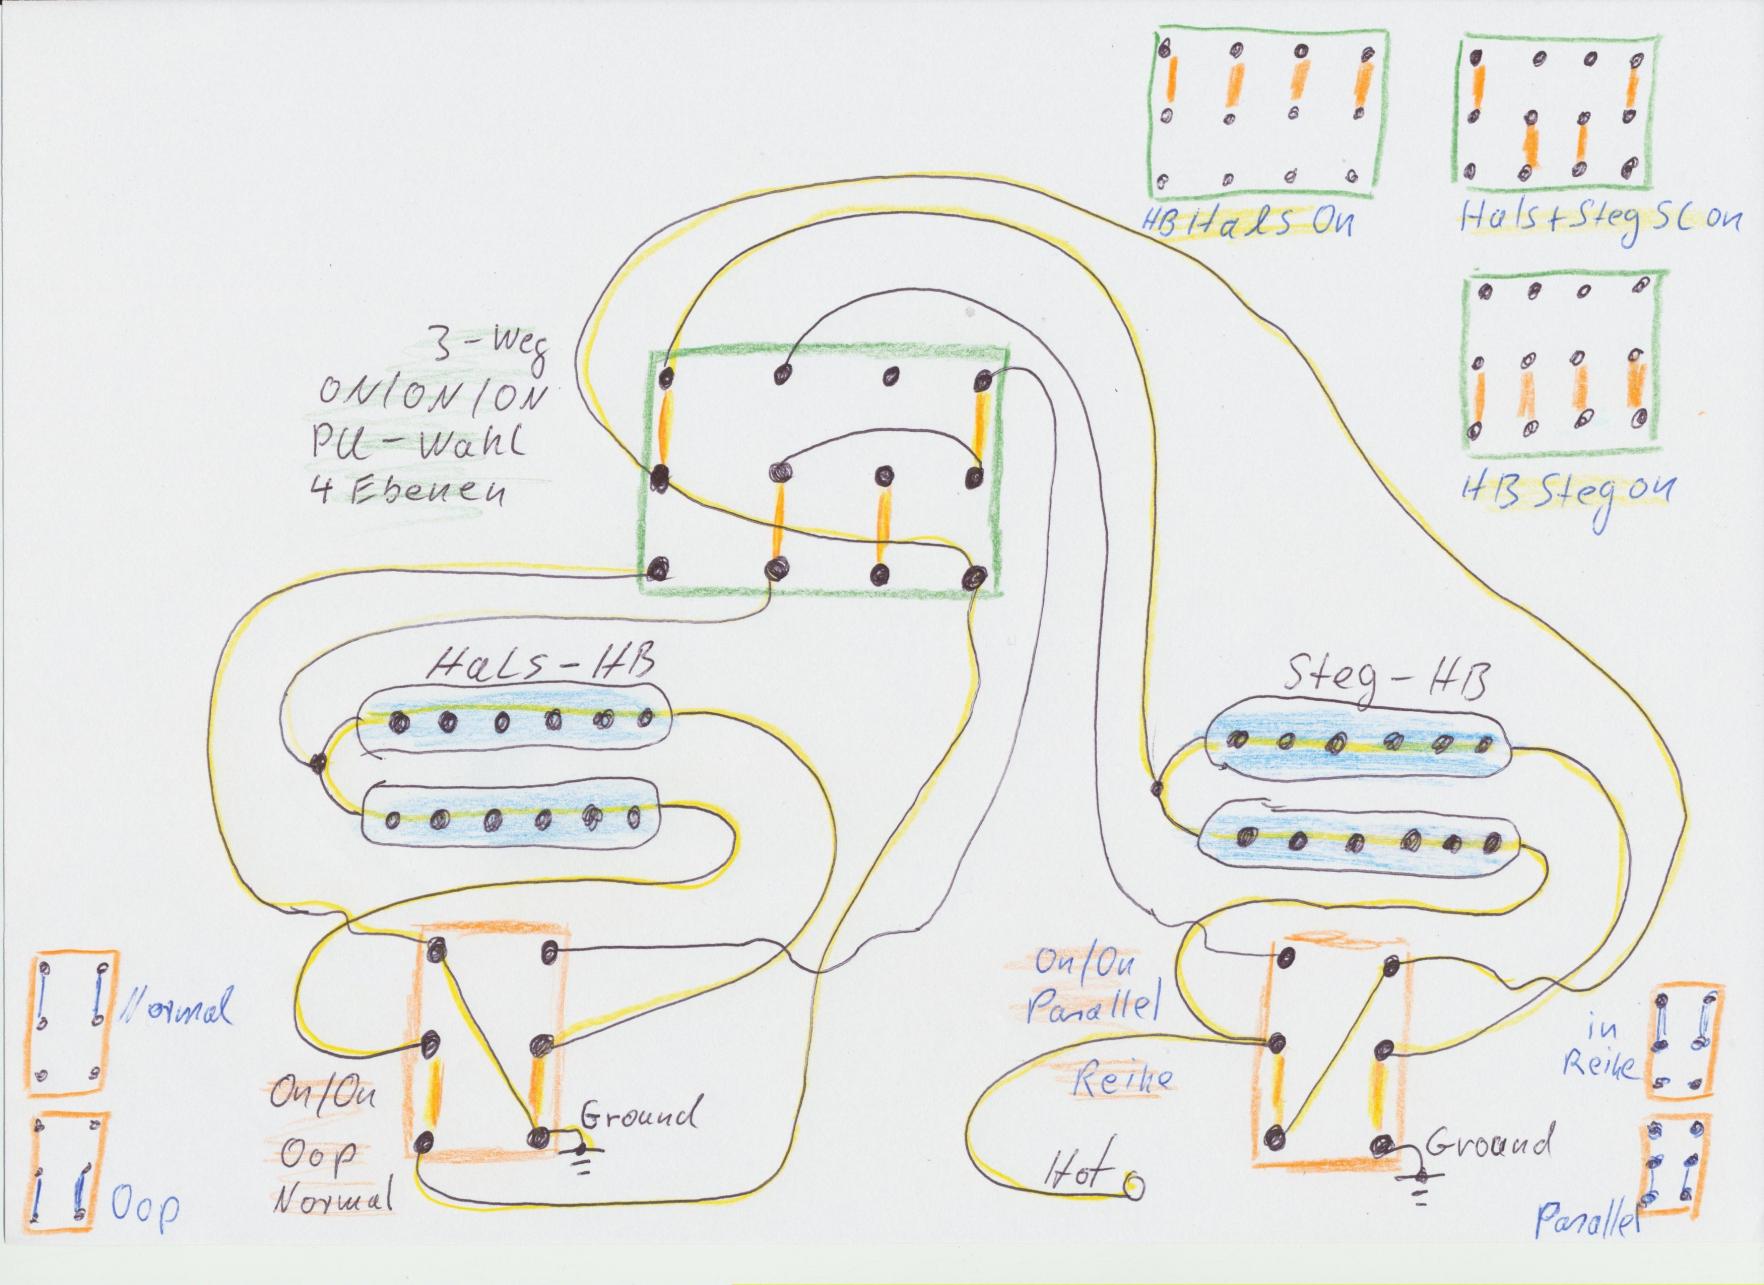 HB Hals On
Hals+Steg SC on
HB Steg on
3-Weg
ON/ON/ON
PU-Wahl
4 Ebenen
Hals-HB
Steg-HB
Normal
Oop
On/On
Oop
Normal
Ground
On/On
Parallel
Reihe
Hot
Ground
in
Reihe
Parallel